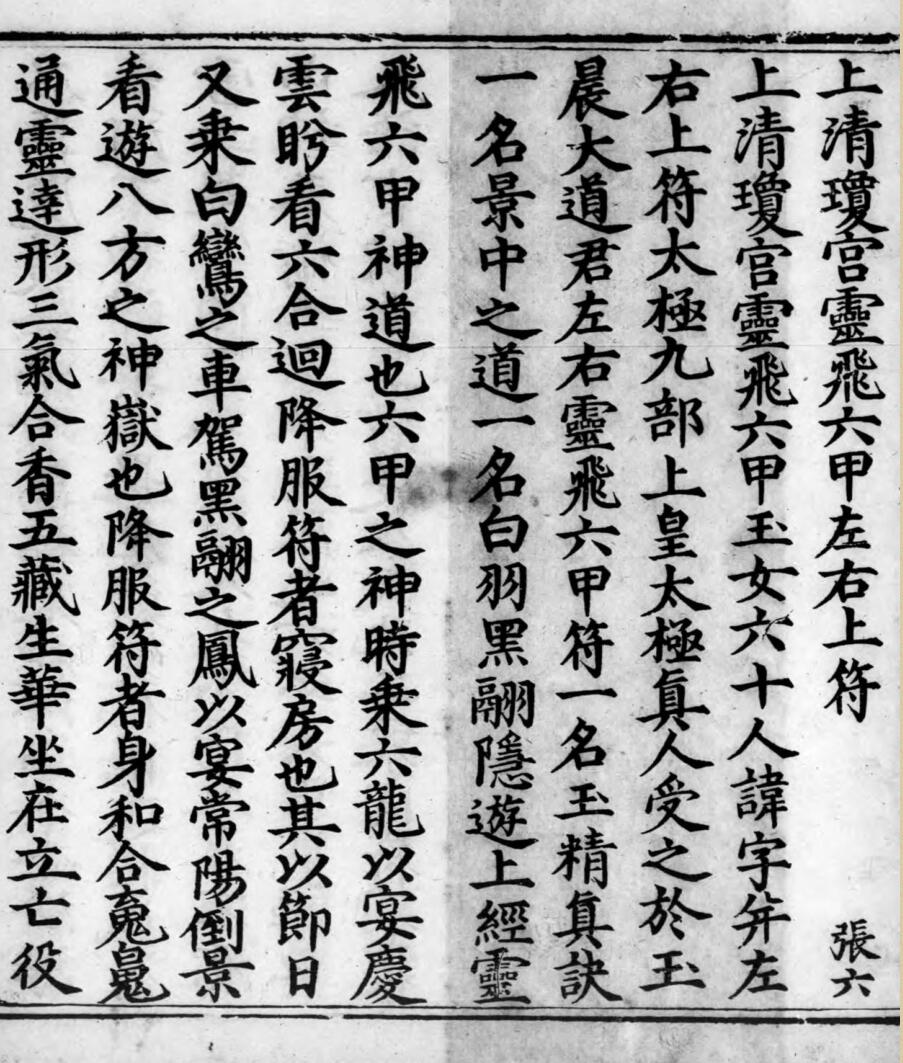 上清瓊宮靈飛六甲左右上符　張六
上清瓊宮靈飛六甲玉女六十人諱字并左
右上符太極九部上皇太極真人受之於玉
晨大道君左右靈飛六甲符一名玉精真訣
一名景中之道一名白羽黑翮隱遊上經靈
飛六甲神道也六甲之神時乗六龍以宴慶
雲盻看六合迴降服符者寢房也其以節日
又乗白鸞之車駕黑翮之鳳以宴常陽倒景
看遊八方之神嶽也降服符者身和合䰟䰟
通靈達形三氣合香五藏生華坐在立亡役